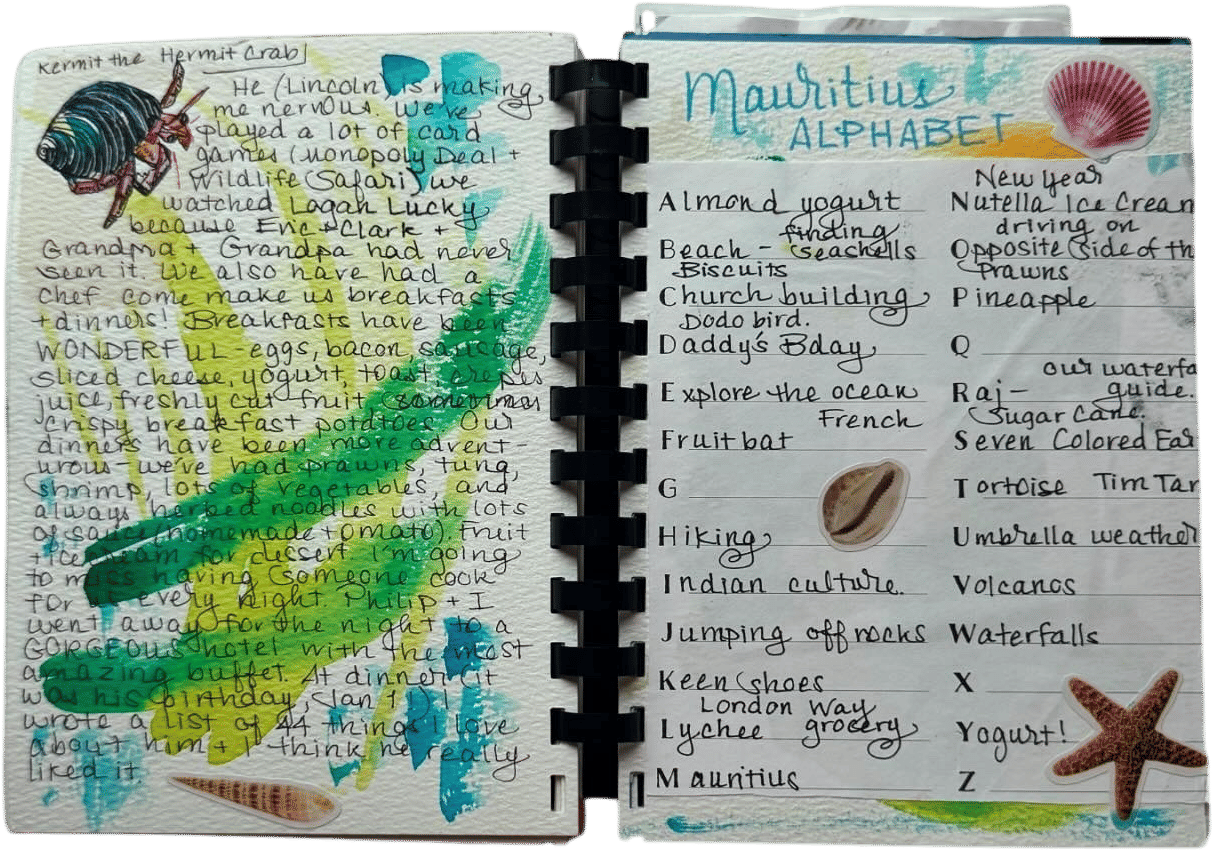 Kermit the Hermit Crab
He (Lincoln) is making
me nervous. We've
played a lot of card
games (Monopoly Deal +
Wildlife Safari) we
watched Logan Lucky
because Eric + Clark +
Grandma + Grandpa had never
seen it. We also have had a
chef come make us breakfasts
+ dinners! Breakfasts have been
WONDERFUL - eggs, bacon, sausage,
sliced cheese, yogurt, toast, crepes
juice, freshly cut fruit sometimes
crispy breakfast potatoes. Our
dinners have been more advent-
urous - we've had prawns, tuna,
shrimp, lots of vegetables, and
always herbed noodles with lots
of sauce (homemade tomato). Fruit
+ ice cream for dessert. I'm going
to miss having someone cook
for us every night. Philip + I
went away for the night to a
GORGEOUS hotel with the most
amazing buffet. At dinner (it
was his birthday, Jan 1) I
wrote a list of 44 things I love
about him + I think he really
liked it.
Mauritius
ALPHABET
Almond yogurt
finding
Beach - seashells
Biscuits
Church building
Dodo bird.
Daddy's Bday
Explore the ocean
French
Fruit bat
G
Hiking
Indian culture.
Jumping off rocks
Keen shoes
London Way
Lychee grocery
Mauritius
New Year
Nutella Ice Cream
driving on
Opposite side of th
Prawns
Pineapple
Q
our waterfa
Raj - guide.
Sugar Cane.
Seven Colored Ear
Tortoise Tim Tam
Umbrella weather
Volcanos
Waterfalls
X
Yogurt!
Z